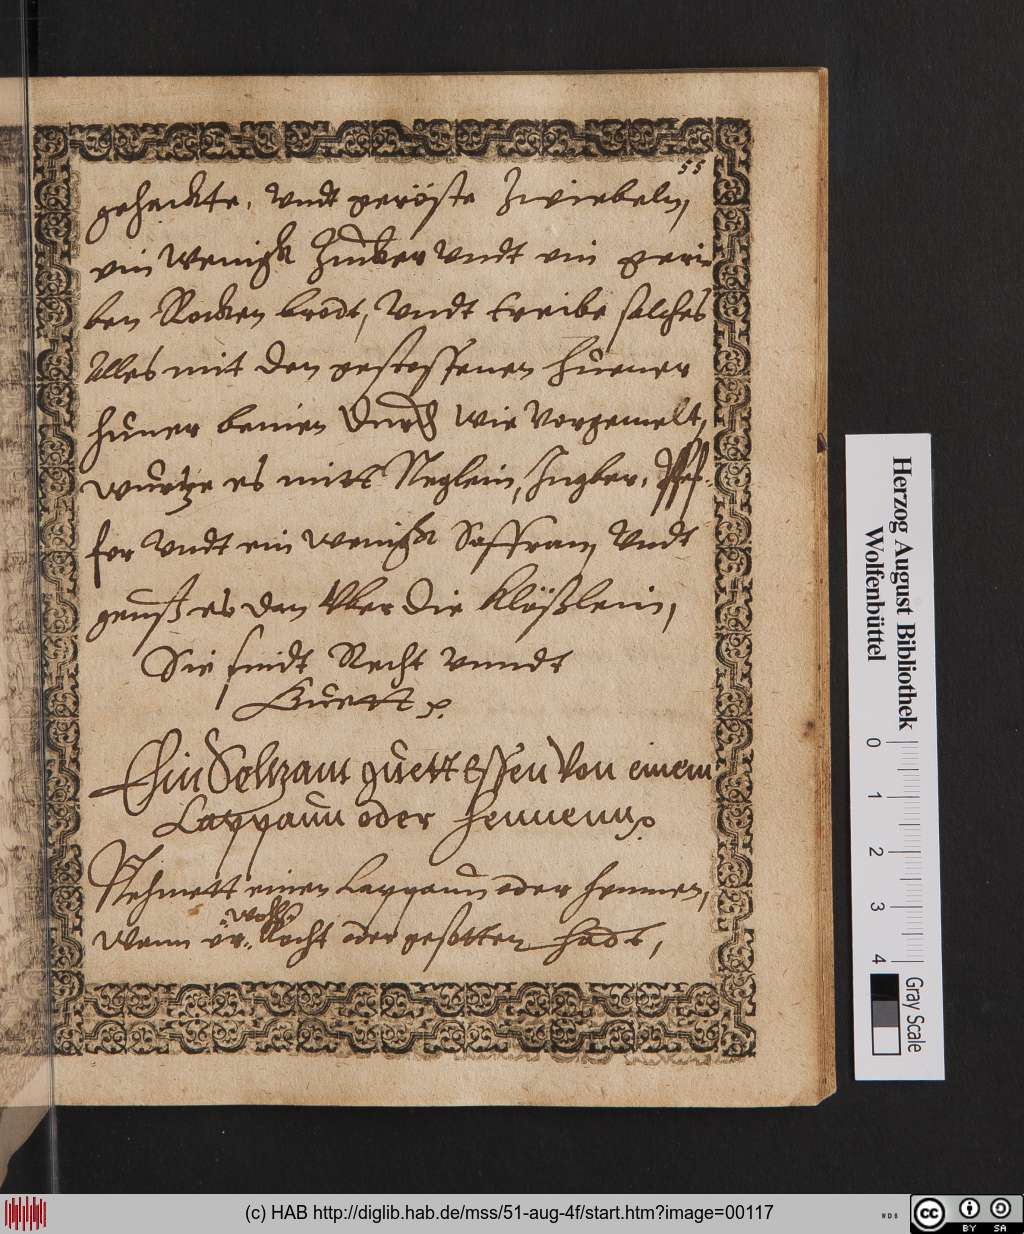 55
gehackte, vndt geröste Zwiebeln,
ein wenigk Zucker vndt ein gerie
ben Rocken brodt, vndt treibe solches
Alles mit den gestossenen hüener
hüner beinen durch wie vorgemelt,
würtze es mitt Neglein, Ingber, Pfef-
fer vndt ein wenigk Saffran vndt
geuß es dan vber die klößlein,
Sie sindt Recht vnndt
Guett
Ein Seltzam guett Essen Von einem
Cappaun oder Hennenn
Nehmett einen Cappaun oder hennen,
wohl
Wenn er Kocht oder gesotten hadt,
Herzog August Bibliothek
Wolfenbüttel
0 1 2 3 4
Gray Scale
(c) HAB http://diglib.hab.de/mss/51-aug-4f/start.htm?image=00117
WDB
cc BY SA